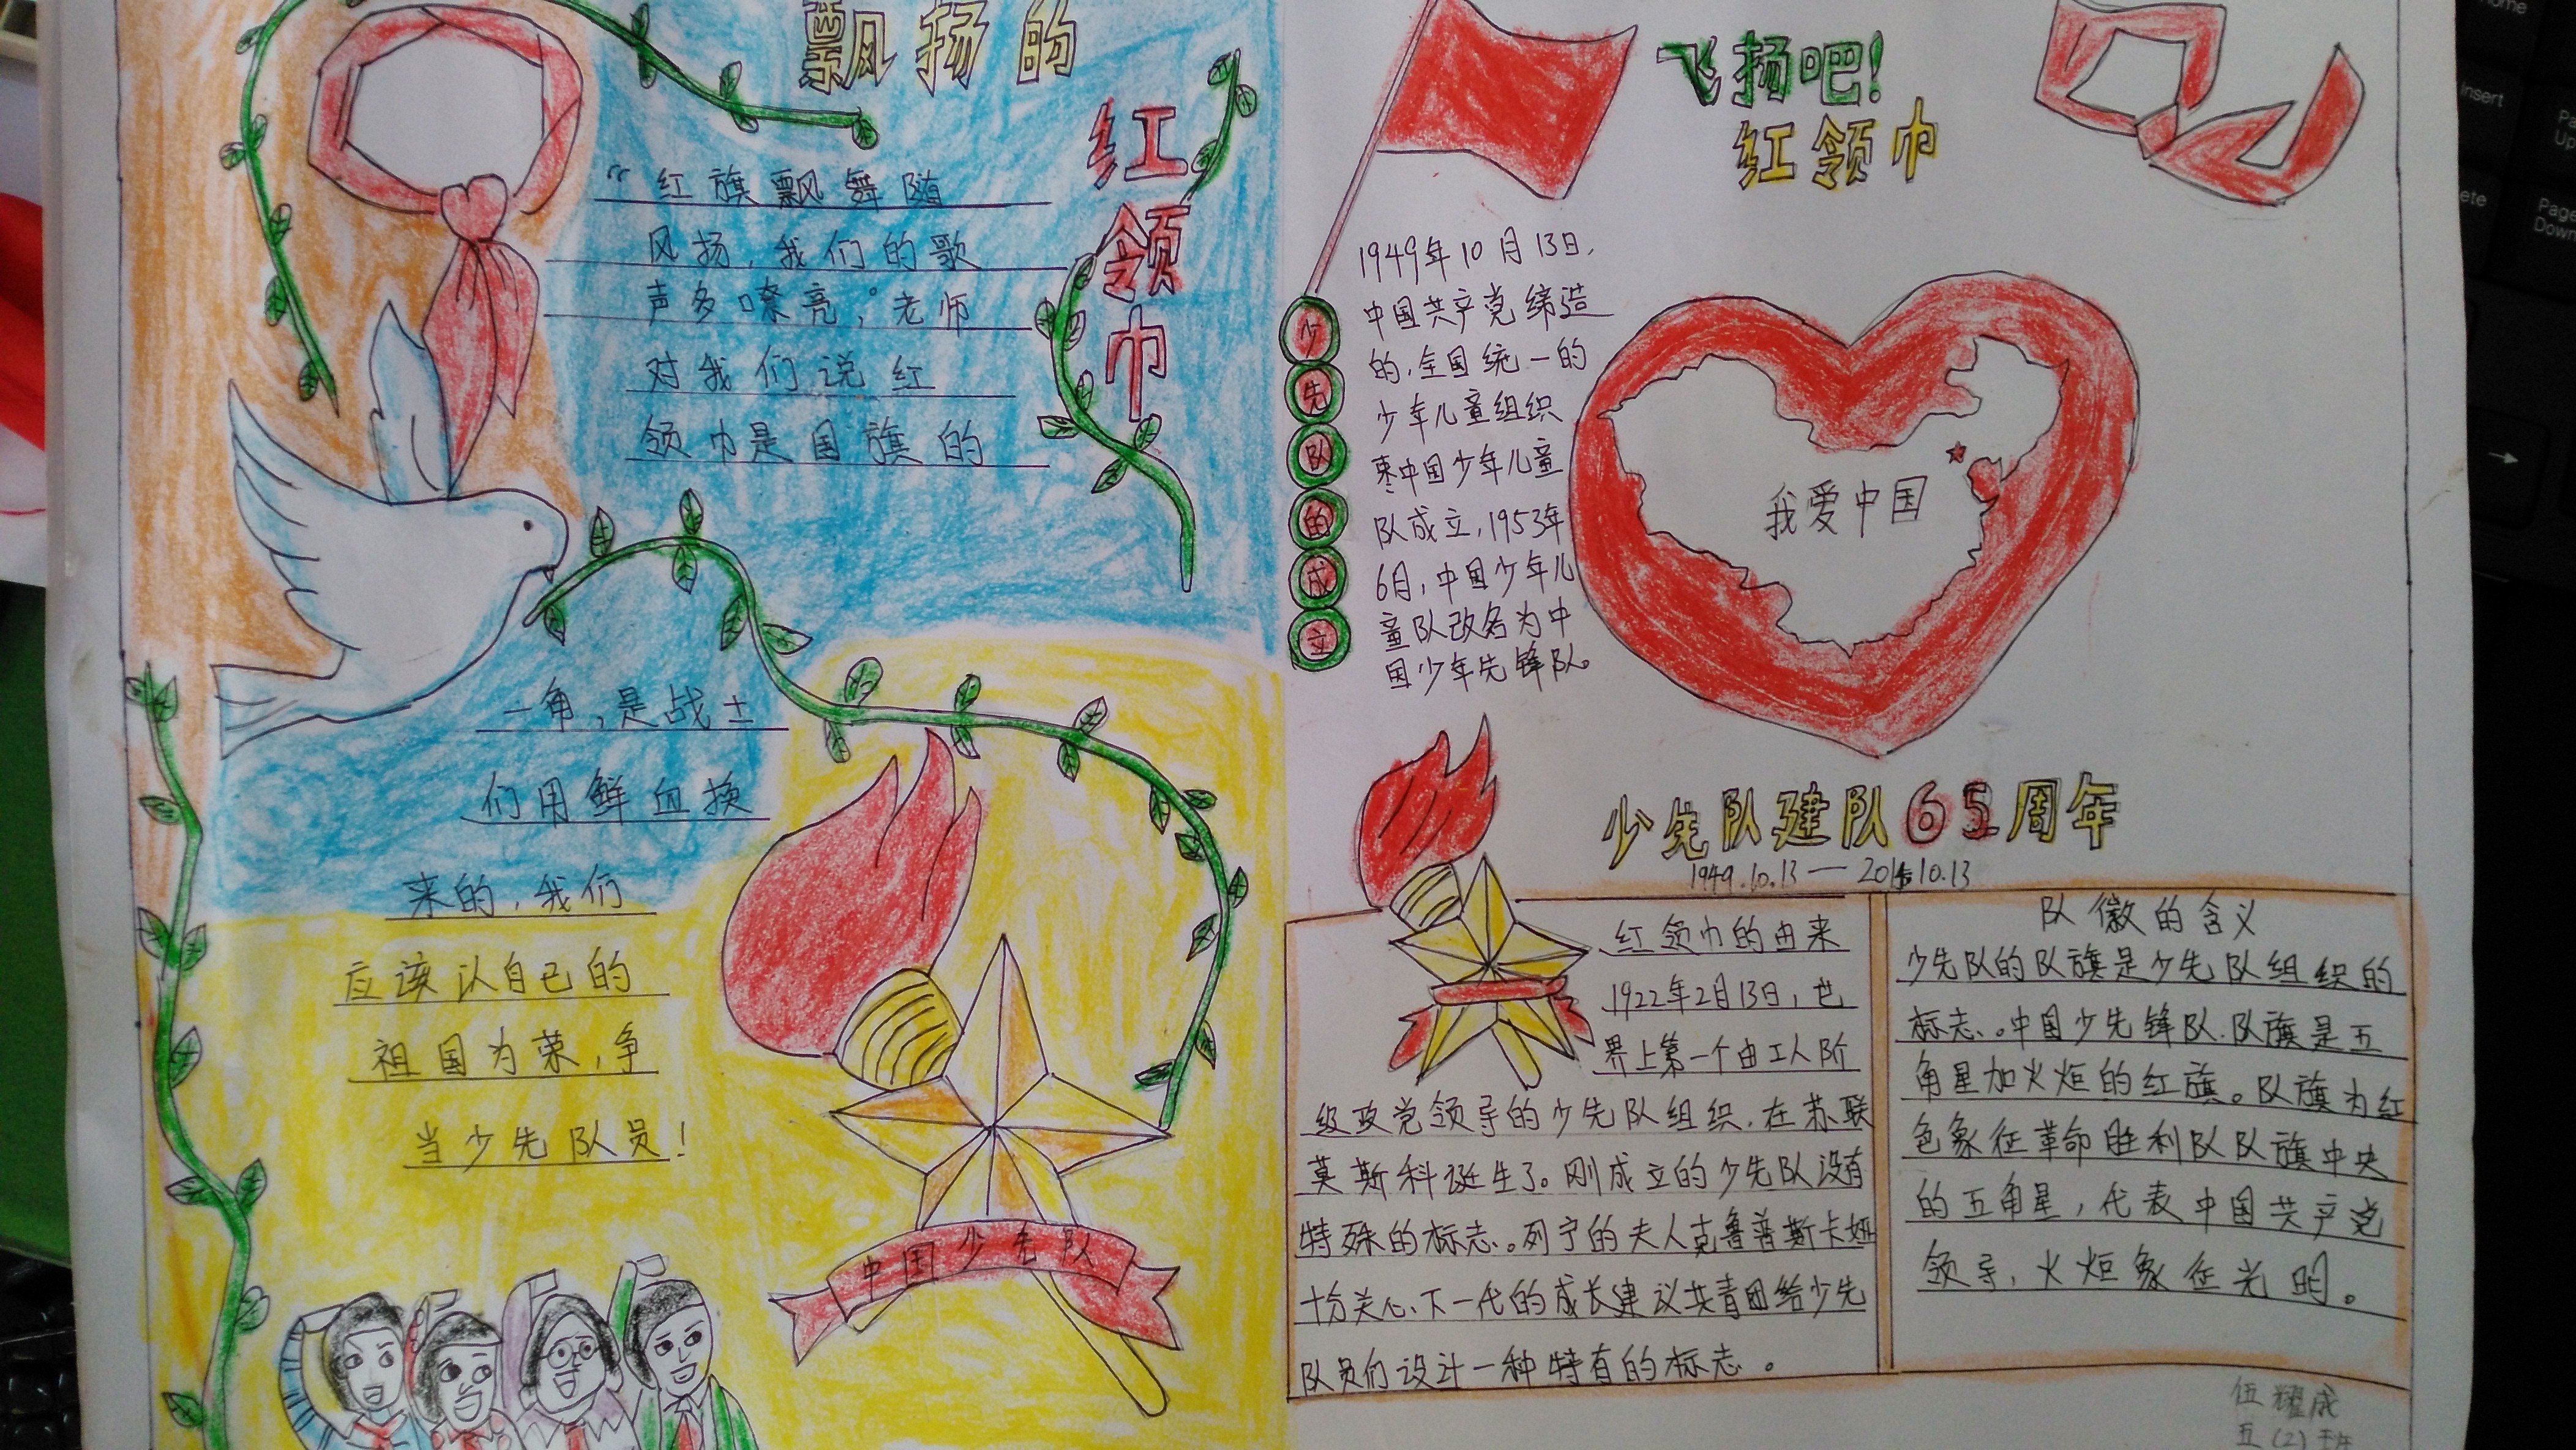 飘扬的
红领巾
“红旗飘舞随
风扬，我们的歌
声多嘹亮，老师
对我们说红
领巾是国旗的
一角，是战士
们用鲜血换
来的，我们
应该认自己的
祖国为荣，争
当少先队员！
中国少先队
飞扬吧！
红领巾
少先队的成立
1949年10月13日，
中国共产党缔造
的，全国统一的
少年儿童组织
枣中国少年儿童
队成立，1953年
6月，中国少年儿
童队改名为中
国少年先锋队。
我爱中国
少先队建队65周年
1949.10.13—
10.13
红领巾的由来
1922年2月13日，世
界上第一个由工人阶
级政党领导的少先队组织，在苏联
莫斯科诞生了。刚成立的少先队没有
特殊的标志。列宁的夫人克鲁普斯卡娅
十分关心下一代的成长建议共青团给少先
队员们设计一种特有的标志。
队徽的含义
少先队的队旗是少先队组织的
标志。中国少先锋队.队旗是五
角星加火炬的红旗。队旗为红
色象征革命胜利队队旗中央
的五角星，代表中国共产党
领导，火炬象征光明。
伍耀成
五（2）班
Insert
Home
Page
Up
Page
Down
→